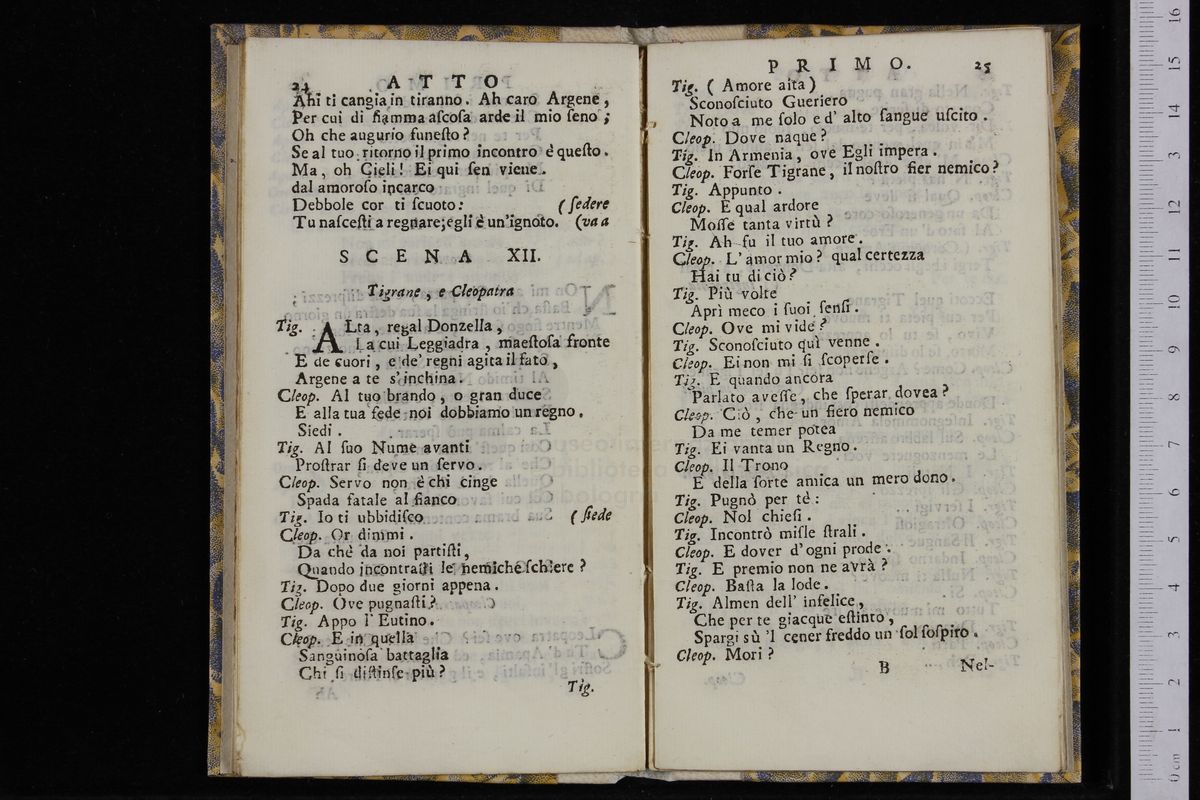 24 ATTO
Ahi ti cangia in tiranno. Ah caro Argene,
Per cui di fiamma aſcoſa arde il mio ſeno;
Oh che augurio funeſto?
Se al tuo ritorno il primo incontro è queſto.
Ma, oh Cieli! Ei qui ſen viene.
dal amoroſo incarco
Debbole cor ti ſcuoto: (ſedere
Tu naſceſti a regnare; egli è un'ignoto. (va a
SCENA XII.
Tigrane, e Cleopatra
Tig. ALta, regal Donzella,
La cui Leggiadra, maeſtoſa fronte
E de cuori, e de' regni agita il fato,
Argene a te s'inchina.
Cleop. Al tuo brando, o gran duce
E alla tua fede noi dobbiamo un regno.
Siedi.
Tig. Al ſuo Nume avanti
Proſtrar ſi deve un ſervo.
Cleop. Servo non è chi cinge
Spada fatale al fianco
Tig. Io ti ubbidiſco (ſiede
Cleop. Or dimmi.
Da chè da noi partiſti,
Quando incontraſti le nemiche ſchiere?
Tig. Dopo due giorni appena.
Cleop. Ove pugnaſti?
Tig. Appo l' Eutino.
Cleop. E in quella
Sanguinoſa battaglia
Chi ſi diſtinſe più?
Tig.
PRIMO. 25
Tig. (Amore aita)
Sconoſciuto Gueriero
Noto a me ſolo e d' alto ſangue uſcito.
Cleop. Dove naque?
Tig. In Armenia, ove Egli impera.
Cleop. Forſe Tigrane, il noſtro fier nemico?
Tig. Appunto.
Cleop. E qual ardore
Moſſe tanta virtù?
Tig. Ah fu il tuo amore.
Cleop. L' amor mio? qual certezza
Hai tu di ciò?
Tig. Più volte
Aprì meco i ſuoi ſenſi.
Cleop. Ove mi vide?
Tig. Sconoſciuto quì venne.
Cleop. Ei non mi ſi ſcoperſe.
Tig. E quando ancora
Parlato aveſſe, che ſperar dovea?
Cleop. Ciò, che un fiero nemico
Da me temer potea
Tig. Ei vanta un Regno.
Cleop. Il Trono
E della ſorte amica un mero dono.
Tig. Pugnò per tè:
Cleop. Nol chieſi.
Tig. Incontrò miſle ſtrali.
Cleop. E dover d'ogni prode.
Tig. E premio non ne avrà?
Cleop. Baſta la lode.
Tig. Almen dell' infelice,
Che per te giacque eſtinto,
Spargi sù 'l cener freddo un ſol ſoſpiro.
Cleop. Mori?
B Nel-